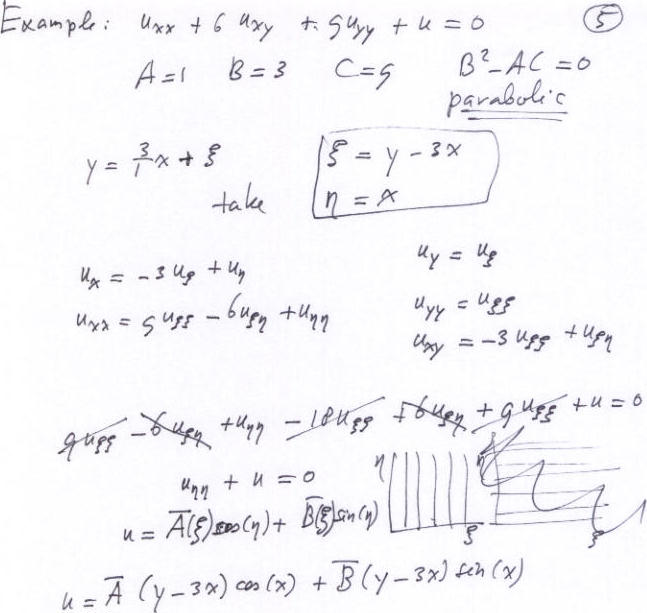 Example: u_xx + 6 u_xy + 9u_yy + u = 0 ⑤
A=1 B=3 C=9 B²-AC=0
parabolic
y = 3/1 x + ξ ξ = y - 3x
take η = x
u_x = -3u_ξ + u_η u_y = u_ξ
u_xx = 9u_ξξ - 6u_ξη + u_ηη u_yy = u_ξξ
u_xy = -3u_ξξ + u_ξη
9u_ξξ - 6u_ξη + u_ηη - 18u_ξξ + 6u_ξη + 9u_ξξ + u = 0
u_ηη + u = 0 η η
u = A̅(ξ)cos(η) + B̅(ξ)sin(η) ξ ξ
u = A̅(y-3x)cos(x) + B̅(y-3x)sin(x)